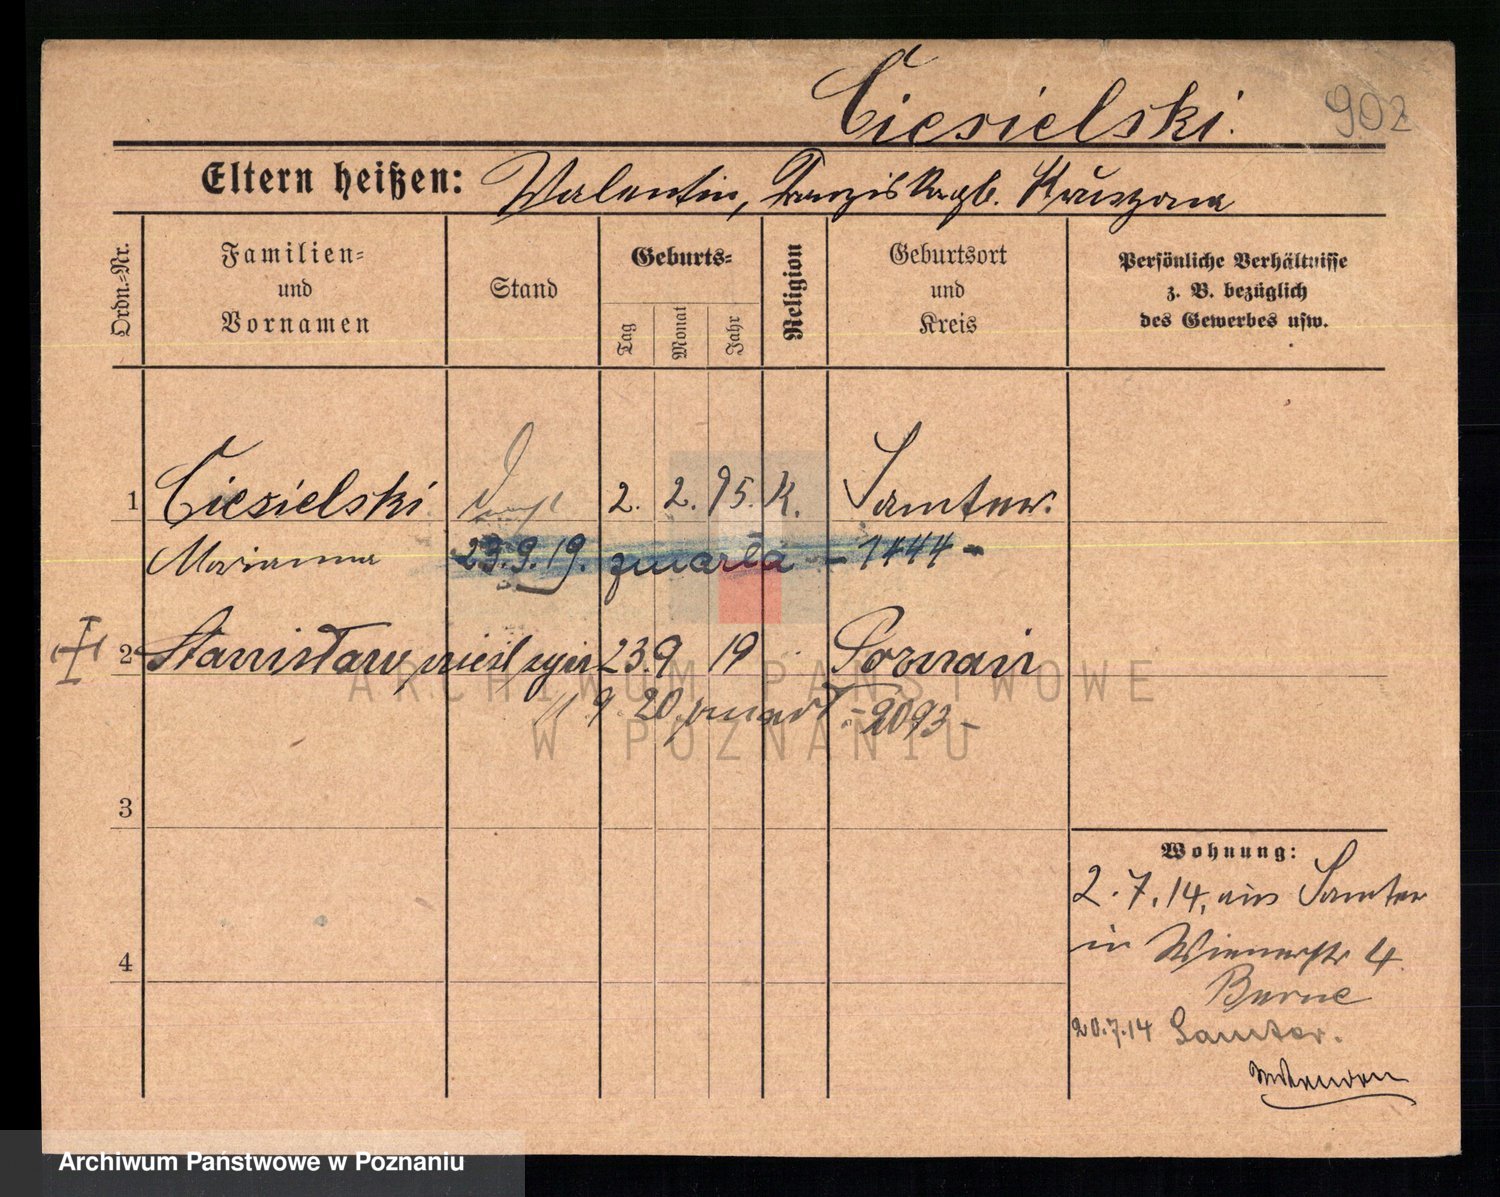 Ciesielski.
902
Eltern heißen: Valentin, Franziska geb.
Ordn.=Nr.
Familien= und Vornamen
Stand
Geburts=
Tag
Monat
Jahr
Religion
Geburtsort und Kreis
Persönliche Verhältnisse z. B. bezüglich des Gewerbes usw.
1 Ciesielski 2. 2. 95. K. Samter.
Marianna 23.9.19. zmarła – 1444 –
2 Stanisław nieśl. syn 23.9 19 Poznań
11 9. 20 zmarł – 2093 –
3
4
Wohnung:
2.7.14, aus Samter
in Wienerstr 4
20.7.14 Samter.
ARCHIWUM PAŃSTWOWE
W POZNANIU
Archiwum Państwowe w Poznaniu